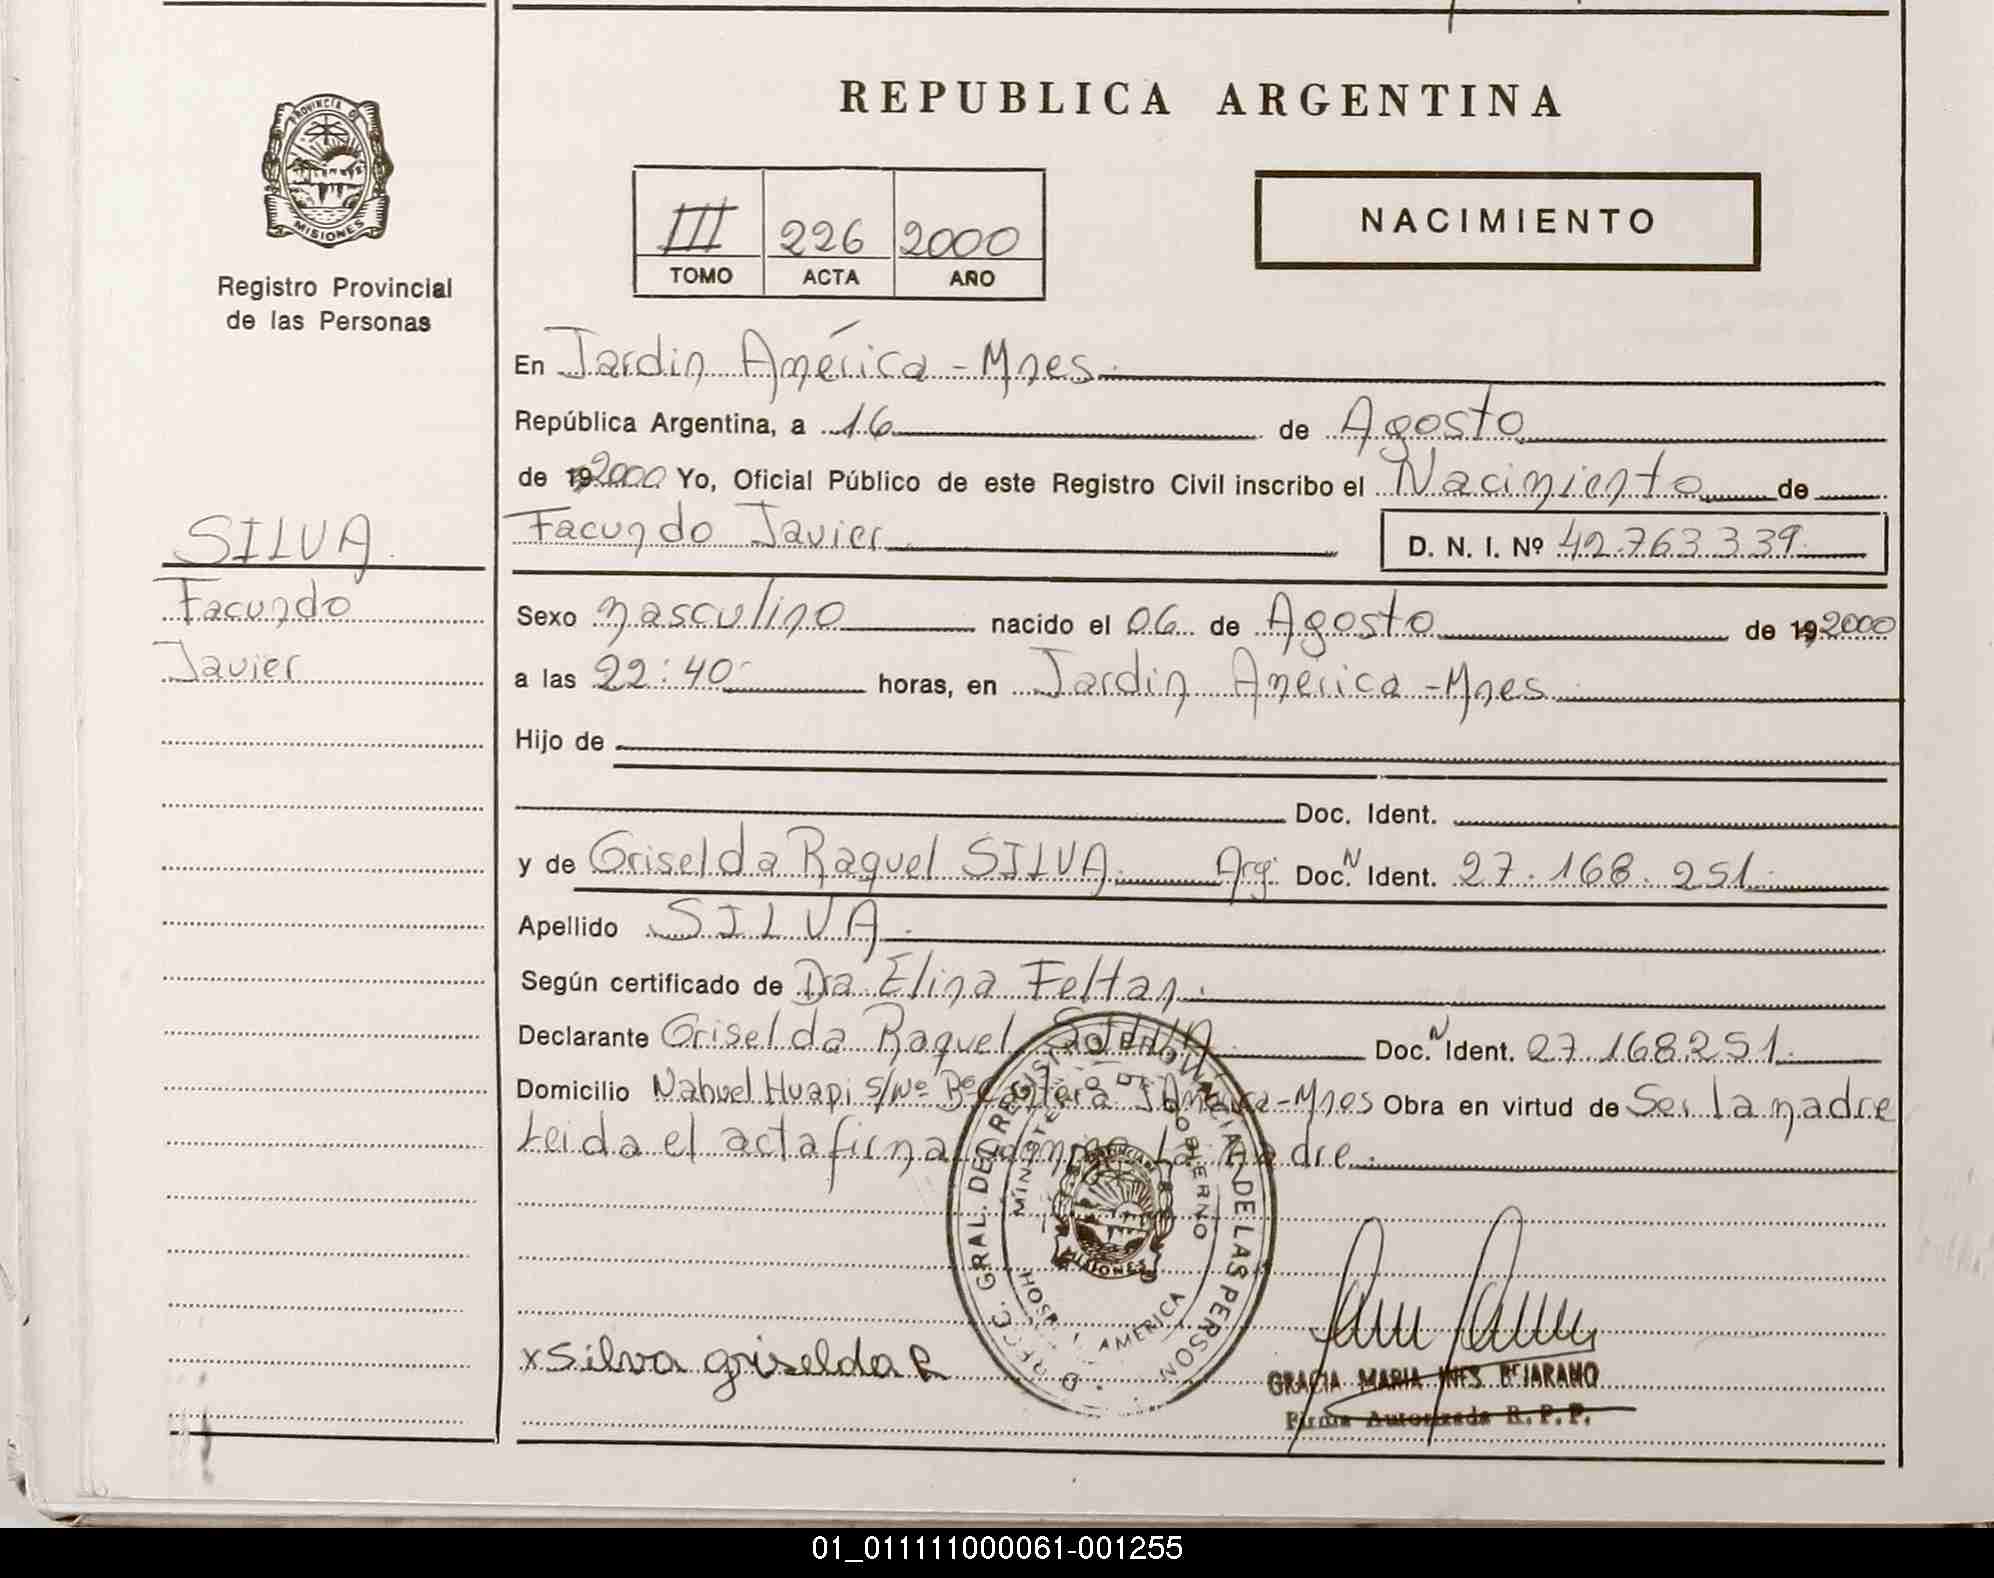 REPUBLICA ARGENTINA
PROVINCIA DE
MISIONES
Registro Provincial
de las Personas
III 226 2000
TOMO ACTA AÑO
NACIMIENTO
En Jardin América - Mnes.
República Argentina, a 16 de Agosto
de 19 2000 Yo, Oficial Público de este Registro Civil inscribo el Nacimiento de
SILVA.
Facundo
Javier
Facundo Javier D. N. I. Nº 42.763.339
Sexo masculino nacido el 06 de Agosto de 19 2000
a las 22:40 horas, en Jardin América - Mnes
Hijo de
Doc. Ident.
y de Griselda Raquel SILVA. Arg. Doc. N Ident. 27.168.251.
Apellido SILVA.
Según certificado de Dra Elina Feltan.
Declarante Griselda Raquel SILVA. Doc. N Ident. 27.168251.
Domicilio Nahuel Huapi s/Nº Bº Cantera J. América - Mnes Obra en virtud de Ser la madre
Leida el acta firma conmigo La madre.
DIRECC. GRAL. DEL REGISTRO PROVINCIAL DE LAS PERSON
MINISTERIO DE GOBIERNO
PROVINCIA
MISIONES
HOSP. AMERICA
x Silva griselda R
GRACIA MARIA INES BEJARANO
Firma Autorizada R. P. P.
01_011111000061-001255